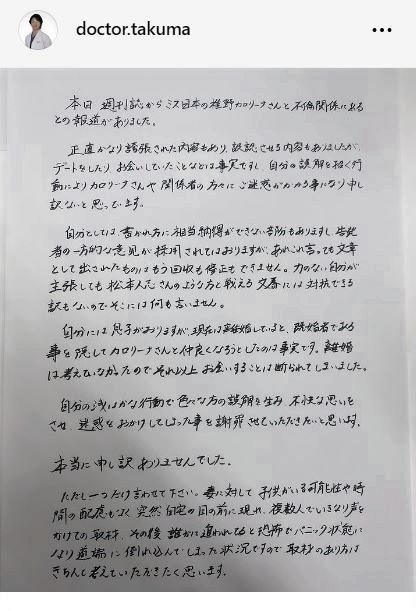 doctor.takuma
本日 週刊誌からミス日本の椎野カロリーナさんと不倫関係にある
との報道がありました。
正直かなり誇張された内容もあり、誤認させる内容もありましたが、
デートをしたり、お会いしていたことなどは事実ですし、自分の誤解を招く行
動によりカロリーナさんや関係者の方々にご迷惑がかかる事になり申し
訳ないと思っています。
自分としては書かれ方に相当納得ができない部分もありますし、告発
者の一方的な意見が採用されてはおりますが、あれこれ言っても文章
として出されたものはもう回収も修正もできません。力のない自分が
主張しても松本人志さんのような方と戦える文春には対抗できる
訳もないのでそこには何も言いません。
自分には息子がおりますが、現在は離婚していると、既婚者である
事を隠してカロリーナさんと仲良くなろうとしたのは事実です。離婚
は考えていなかったのでそれ以上お会いすることは断られてしまいました。
自分の浅はかな行動で色々な方の誤解を生み、不快な思いを
させ、迷惑をおかけしてしまった事を謝罪させていただきたいと思います。
本当に申し訳ありませんでした。
ただし一つだけ言わせて下さい。妻に対して子供がいる可能性や時
間の配慮もなく突然自宅の目の前に現れ、複数人でいきなり声を
かけての取材、その後、誰かに追われてると恐怖でパニック状態に
なり道端に倒れ込んでしまった状況ですので取材のあり方は
きちんと考えていただきたく思います。